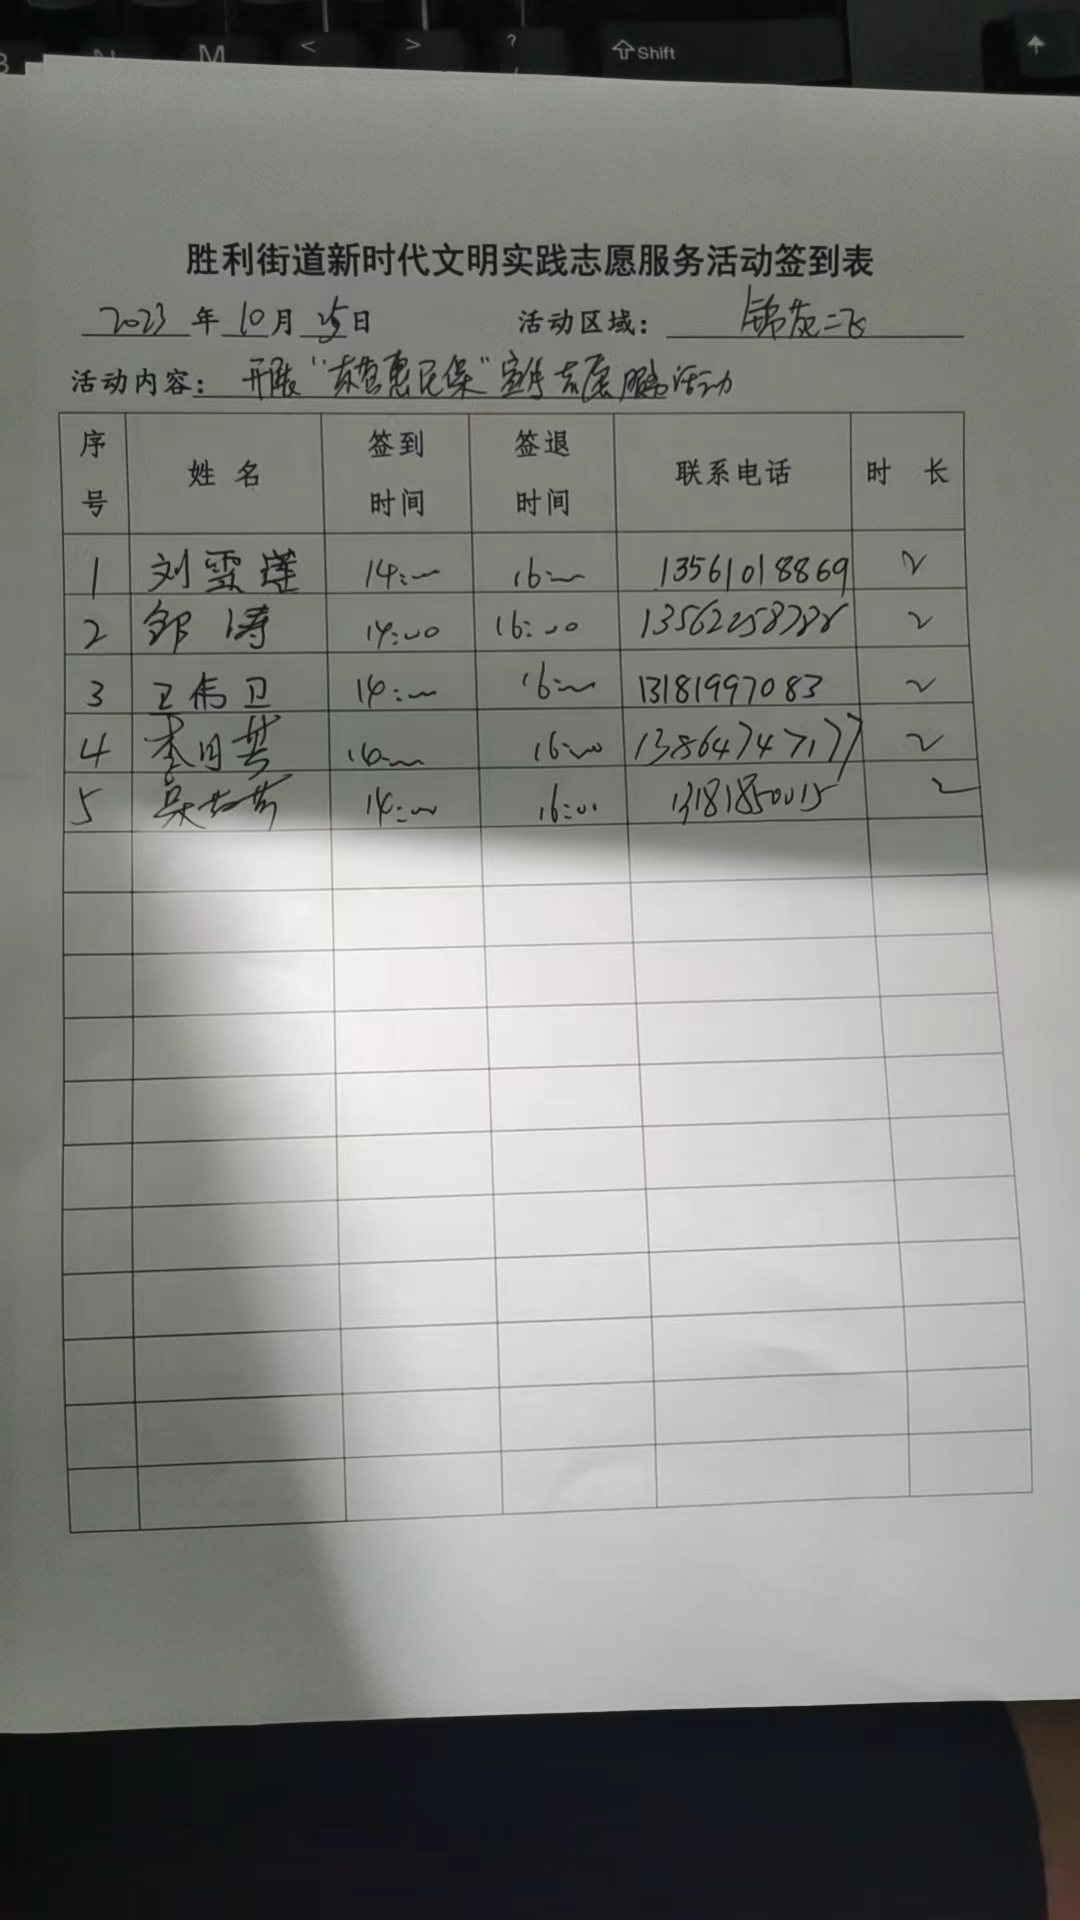 M < > ? Shift
胜利街道新时代文明实践志愿服务活动签到表
2023 年 10 月 25 日 活动区域: 锦苑二
活动内容: 开展“东营惠民保”宣传志愿服务活动
序号 姓 名 签到时间 签退时间 联系电话 时 长
1 刘雪莲 14:00 16:00 13561018869 2
2 邹涛 14:00 16:00 2
3 王伟卫 14:00 16:00 13181997083 2
4 李日芸 16:00 13864747177 2
5 吴 14:00 16:00 13181850015 2